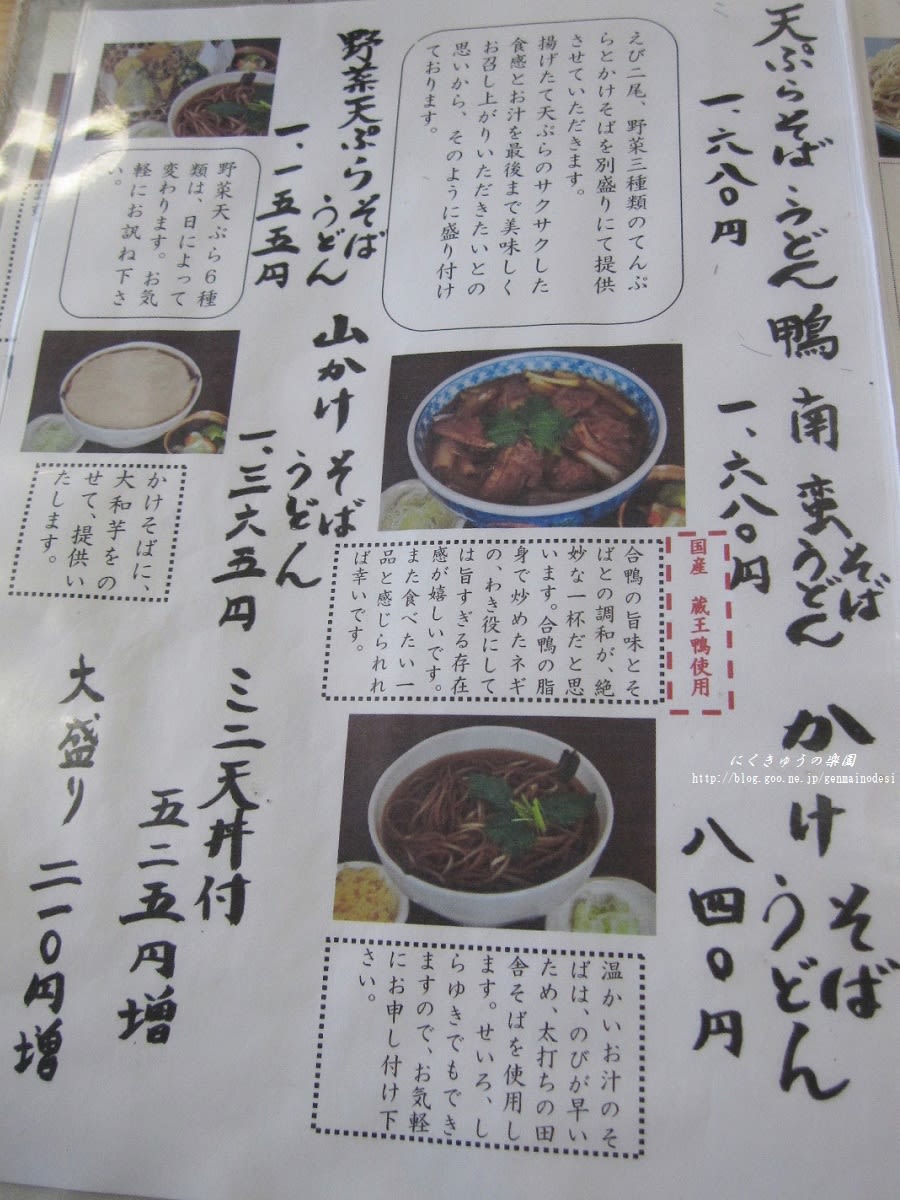 天ぷらそば
うどん
一、六八〇円
えび二尾、野菜三種類のてんぷ
らとかけそばを別盛りにて提供
させていただきます。
揚げたて天ぷらのサクサクした
食感とお汁を最後まで美味しく
お召し上がりいただきたいとの
思いから、そのように盛り付け
ております。
鴨南蛮そば
うどん
一、六八〇円
国産 蔵王鴨使用
合鴨の旨味とそ
ばとの調和が、絶
妙な一杯だと思
います。合鴨の脂
身で炒めたネギ
の、わき役にして
は旨すぎる存在
感が嬉しいです。
また食べたい一
品と感じられれ
ば幸いです。
かけそば
うどん
八四〇円
温かいお汁のそ
ばは、のびが早い
ため、太打ちの田
舎そばを使用し
ます。せいろ、し
らゆきでもでき
ますので、お気軽
にお申し付け下
さい。
野菜天ぷらそば
うどん
一、一五五円
野菜天ぷら6種
類は、日によって
変わります。お気
軽にお訊ね下さ
い。
山かけそば
うどん
一、三六五円
かけそばに、
大和芋をの
せて、提供い
たします。
ミニ天丼付
五二五円増
大盛り
二一〇円増
にくきゅうの楽園
http://blog.goo.ne.jp/genmainodesi